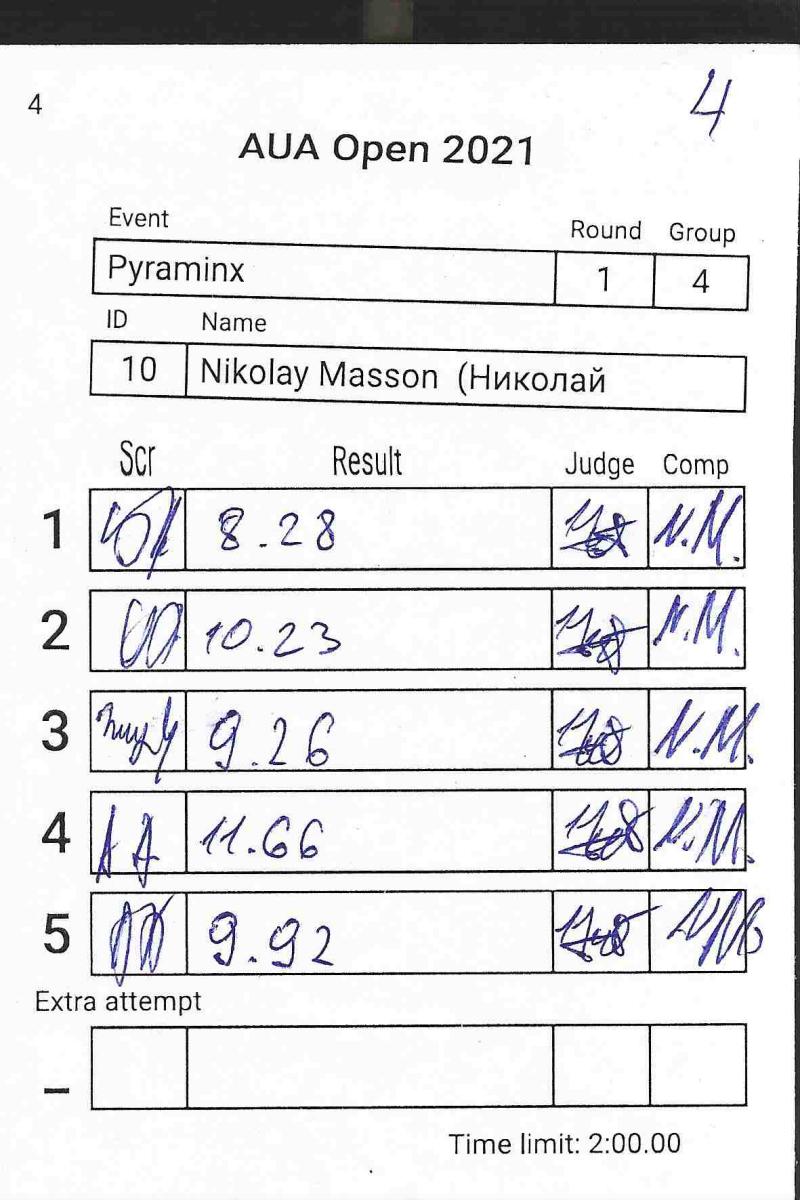 4
4
AUA Open 2021
Event Round Group
Pyraminx 1 4
ID Name
10 Nikolay Masson (Николай
Scr Result Judge Comp
1 8.28 N.M.
2 10.23 N.M.
3 9.26 N.M.
4 AA 11.66 N.M.
5 9.92 N.M.
Extra attempt
–
Time limit: 2:00.00